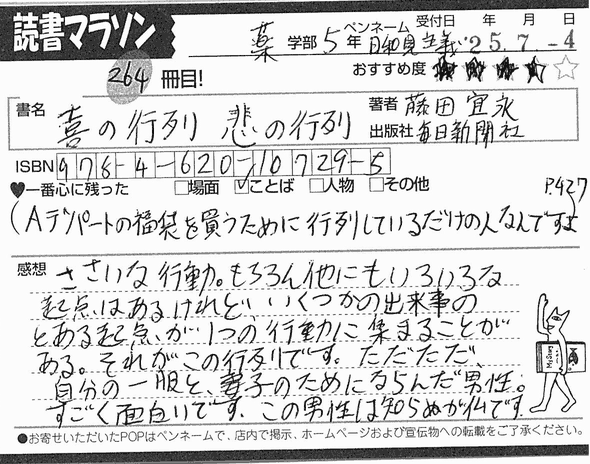 読書マラソン
薬 学部 5年 ペンネーム 日和見主義 受付日 年 月 日 '25.7.-4
264 冊目!
おすすめ度 ★★★★☆
書名 喜の行列 悲の行列
著者 藤田宜永
出版社 毎日新聞社
ISBN 978-4-620-10729-5
♥一番心に残った □場面 ☑ことば □人物 □その他
P.427
(Aデパートの福袋を買うために行列しているだけの人なんですよ)
感想 ささいな行動。もちろん他にもいろいろな
起点はあるけれど、いくつかの出来事の
とある起点が1つの行動に集まることが
ある。それがこの行列です。ただただ、
自分の一服と、妻子のためにならんだ男性。
すごく面白いです、この男性は知らぬが仏です。
●お寄せいただいたPOPはペンネームで、店内で掲示、ホームページおよび宣伝物への転載をご了承ください。